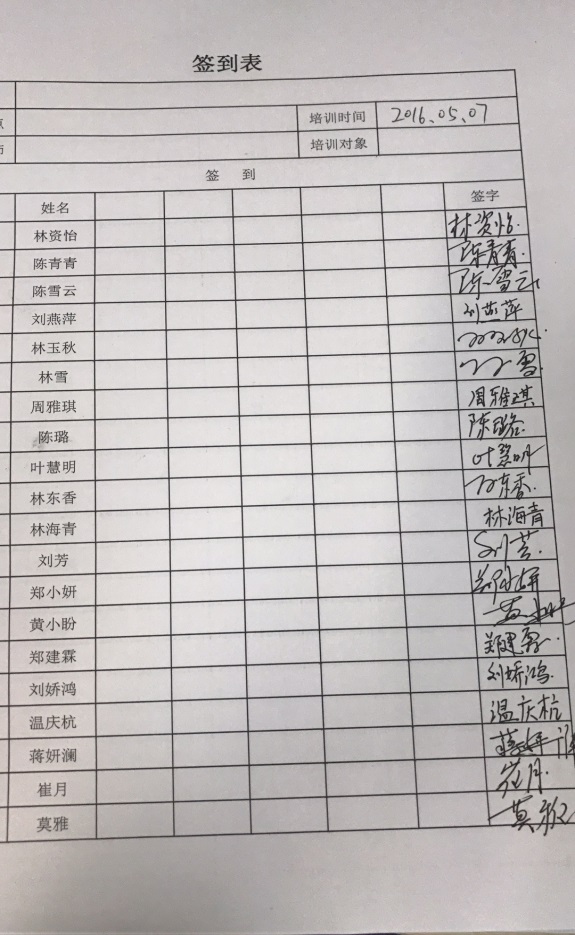 签到表
培训时间 2016.05.07
培训对象
签 到
姓名 签字
林资怡 林资怡
陈青青 陈青青
陈雪云 陈雪云
刘燕萍 刘燕萍
林玉秋
林雪
周雅琪 周雅琪
陈璐 陈璐
叶慧明 叶慧明
林东香 林东香
林海青 林海青
刘芳 刘芳
郑小妍
黄小盼
郑建霖
刘娇鸿 刘娇鸿
温庆杭 温庆杭
蒋妍澜
崔月 崔月
莫雅 莫雅